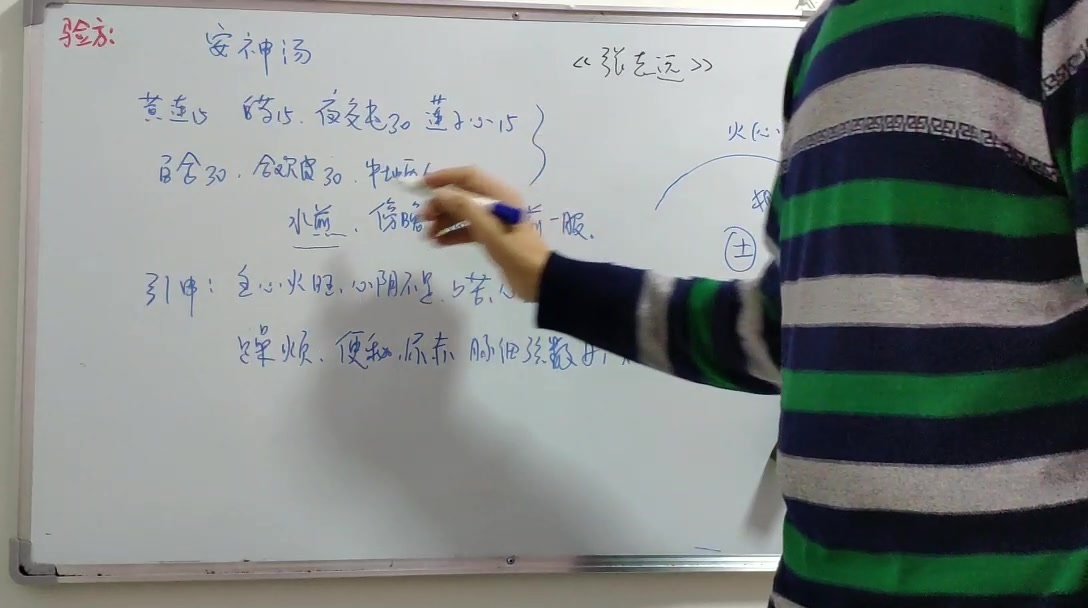 验方:
安神汤
《张志远》
黄连15 白芍15. 夜交藤30 莲子心15
百合30. 合欢皮30.
水煎. 傍晚 前一服.
引申: 主心火旺. 心阴不足. 口苦. 心
躁烦. 便秘. 尿赤 脉细弦数
火(心
土